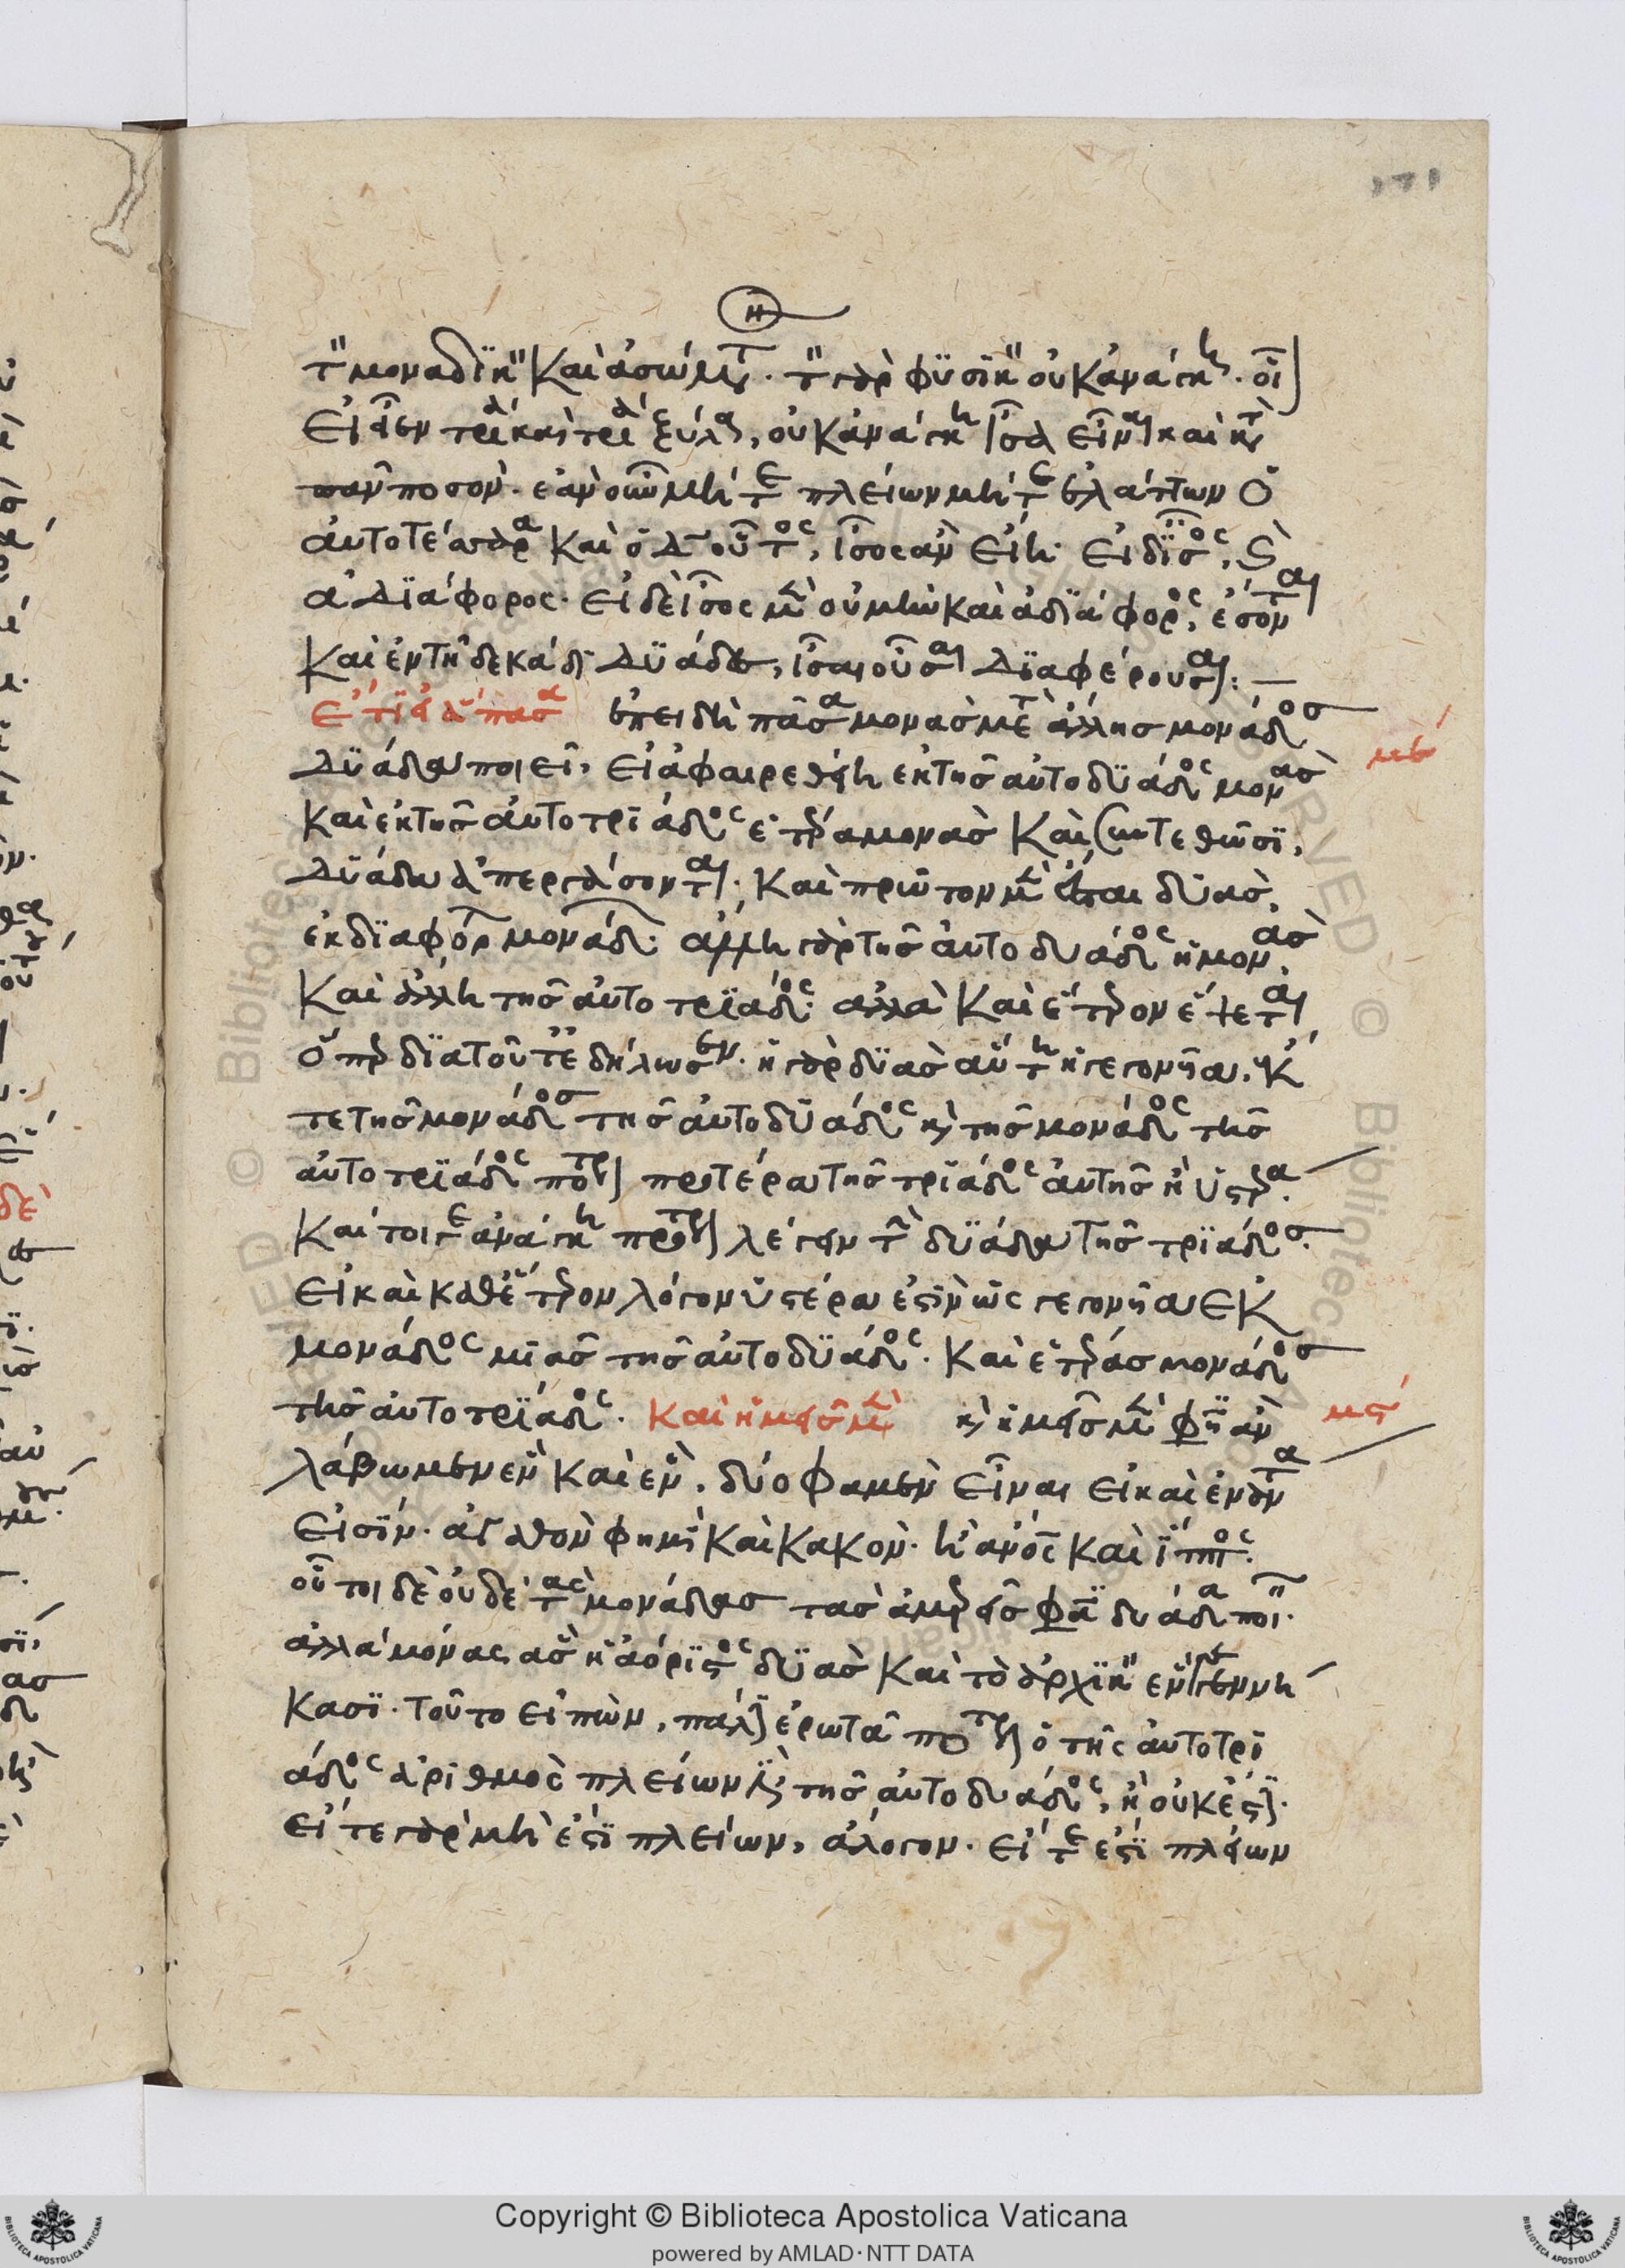 η
τῶν μοναδικῶν καὶ ἀσωμάτων. τῶν γὰρ φυσικῶν οὐκ ἀνάγκη. οἷον
εἰ εἶεν τρία καὶ τρία ξύλα, οὐκ ἀνάγκη ἴσα εἶναι καὶ κατὰ
ποσόν. ἐὰν οὖν μήτε πλείων μήτε ἐλάττων ὁ
καὶ ὁ δ οὗτος, ἴσος ἂν εἴη. εἰ δὲ ἴσος,
ἀδιάφορος. εἰ δὲ ἴσος μὲν οὐ μὴν καὶ ἀδιάφορος, ἔσονται
καὶ ἐν τῇ δεκάδι δυάδες, ἴσαι οὖσαι διαφέρουσαι:
ἔτι εἰ ἅπασα ἐπειδὴ πᾶσα μονὰς μετὰ ἄλλης μονάδος
με
δυάδα ποιεῖ, εἰ ἀφαιρεθείη ἐκ τῆς αὐτοδυάδος μονὰς
καὶ ἐκ τῆς αὐτοτριάδος ἑτέρα μονὰς καὶ συντεθῶσι,
δυάδα ἀπεργάσονται. καὶ πρῶτον μὲν ἔσται δυὰς,
ἐκ διαφόρων μονάδων. ἄλλη γὰρ τῆς αὐτοδυάδος ἡ μονὰς.
καὶ ἄλλη τῆς αὐτοτριάδος. ἀλλὰ καὶ ἕτερον ἕψεται,
ὅπερ διὰ τούτων ἐδήλωσεν. ἡ γὰρ δυὰς αὕτη ἡ γεγονυῖα ἔκ
τε τῆς μονάδος τῆς αὐτοδυάδος καὶ τῆς μονάδος τῆς
αὐτοτριάδος πότερον προτέρα τῆς τριάδος αὐτῆς ἢ ὑστέρα.
καίτοιγε ἀνάγκη πρότερον λέγειν τὴν δυάδα τῆς τριάδος.
εἰ καὶ καθ' ἕτερον λόγον ὑστέρα ἐστὶν ὡς γεγονυῖα ἐκ
μονάδος μιᾶς τῆς αὐτοδυάδος. καὶ ἑτέρας μονάδος
τῆς αὐτοτριάδος. καὶ ἡμεῖς μὲν καὶ ἡμεῖς μὲν φησὶν ἂν
μϛ
λάβωμεν ἓν καὶ ἓν, δύο φαμὲν εἶναι εἰ καὶ ἐναντία
εἰσίν. ἀγαθὸν φημὶ καὶ κακὸν. ἢ ἄνος καὶ ἵππος.
οὗτοι δὲ οὐδὲ τὰς μονάδας τὰς ἀμερεῖς φασὶ δυάδα ποιεῖν.
ἀλλὰ μόνας ἃς ἡ ἀόριστος δυὰς καὶ τὸ ἀρχικὸν ἓν γεγεννή
κασι. τοῦτο εἰπὼν, πάλιν ἐρωτᾷ πότερον ὁ τῆς αὐτοτρι
άδος ἀριθμὸς πλείων ἐστὶ τῆς αὐτοδυάδος, ἢ οὐκ ἔστιν.
εἴτε γὰρ μὴ ἐστὶ πλείων, ἄλογον. εἴτε ἐστὶ πλείων
Copyright © Biblioteca Apostolica Vaticana
powered by AMLAD · NTT DATA